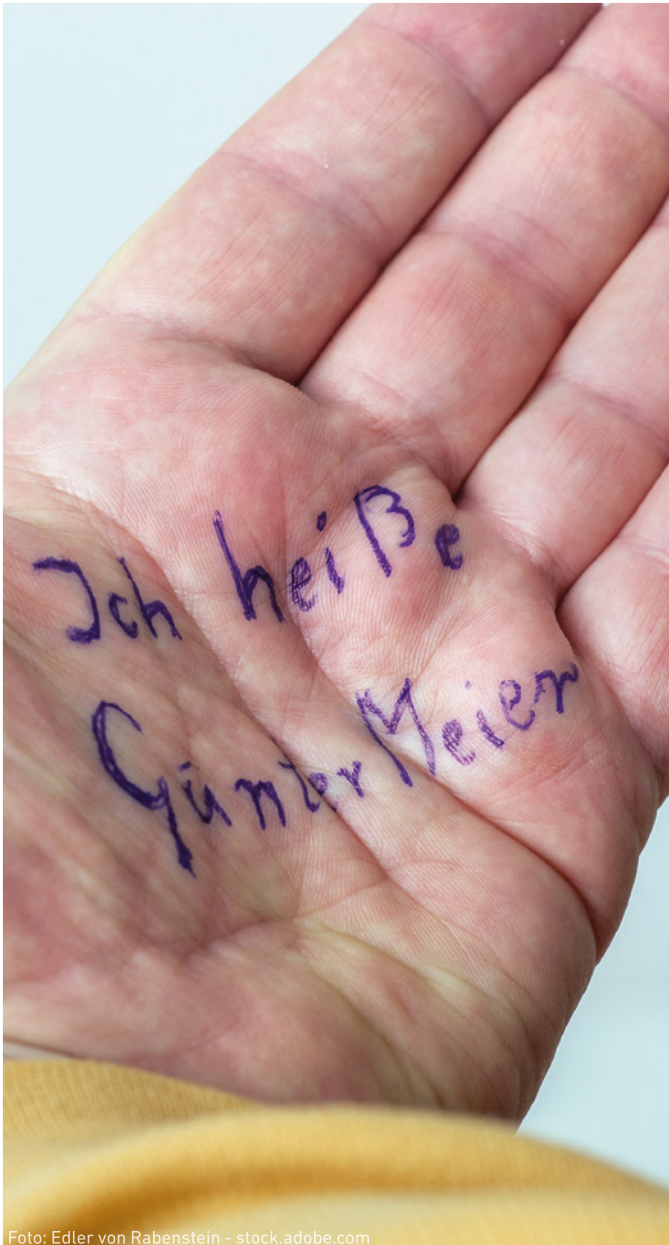 Ich heiße
Günter Meier
Foto: Edler von Rabenstein - stock.adobe.com